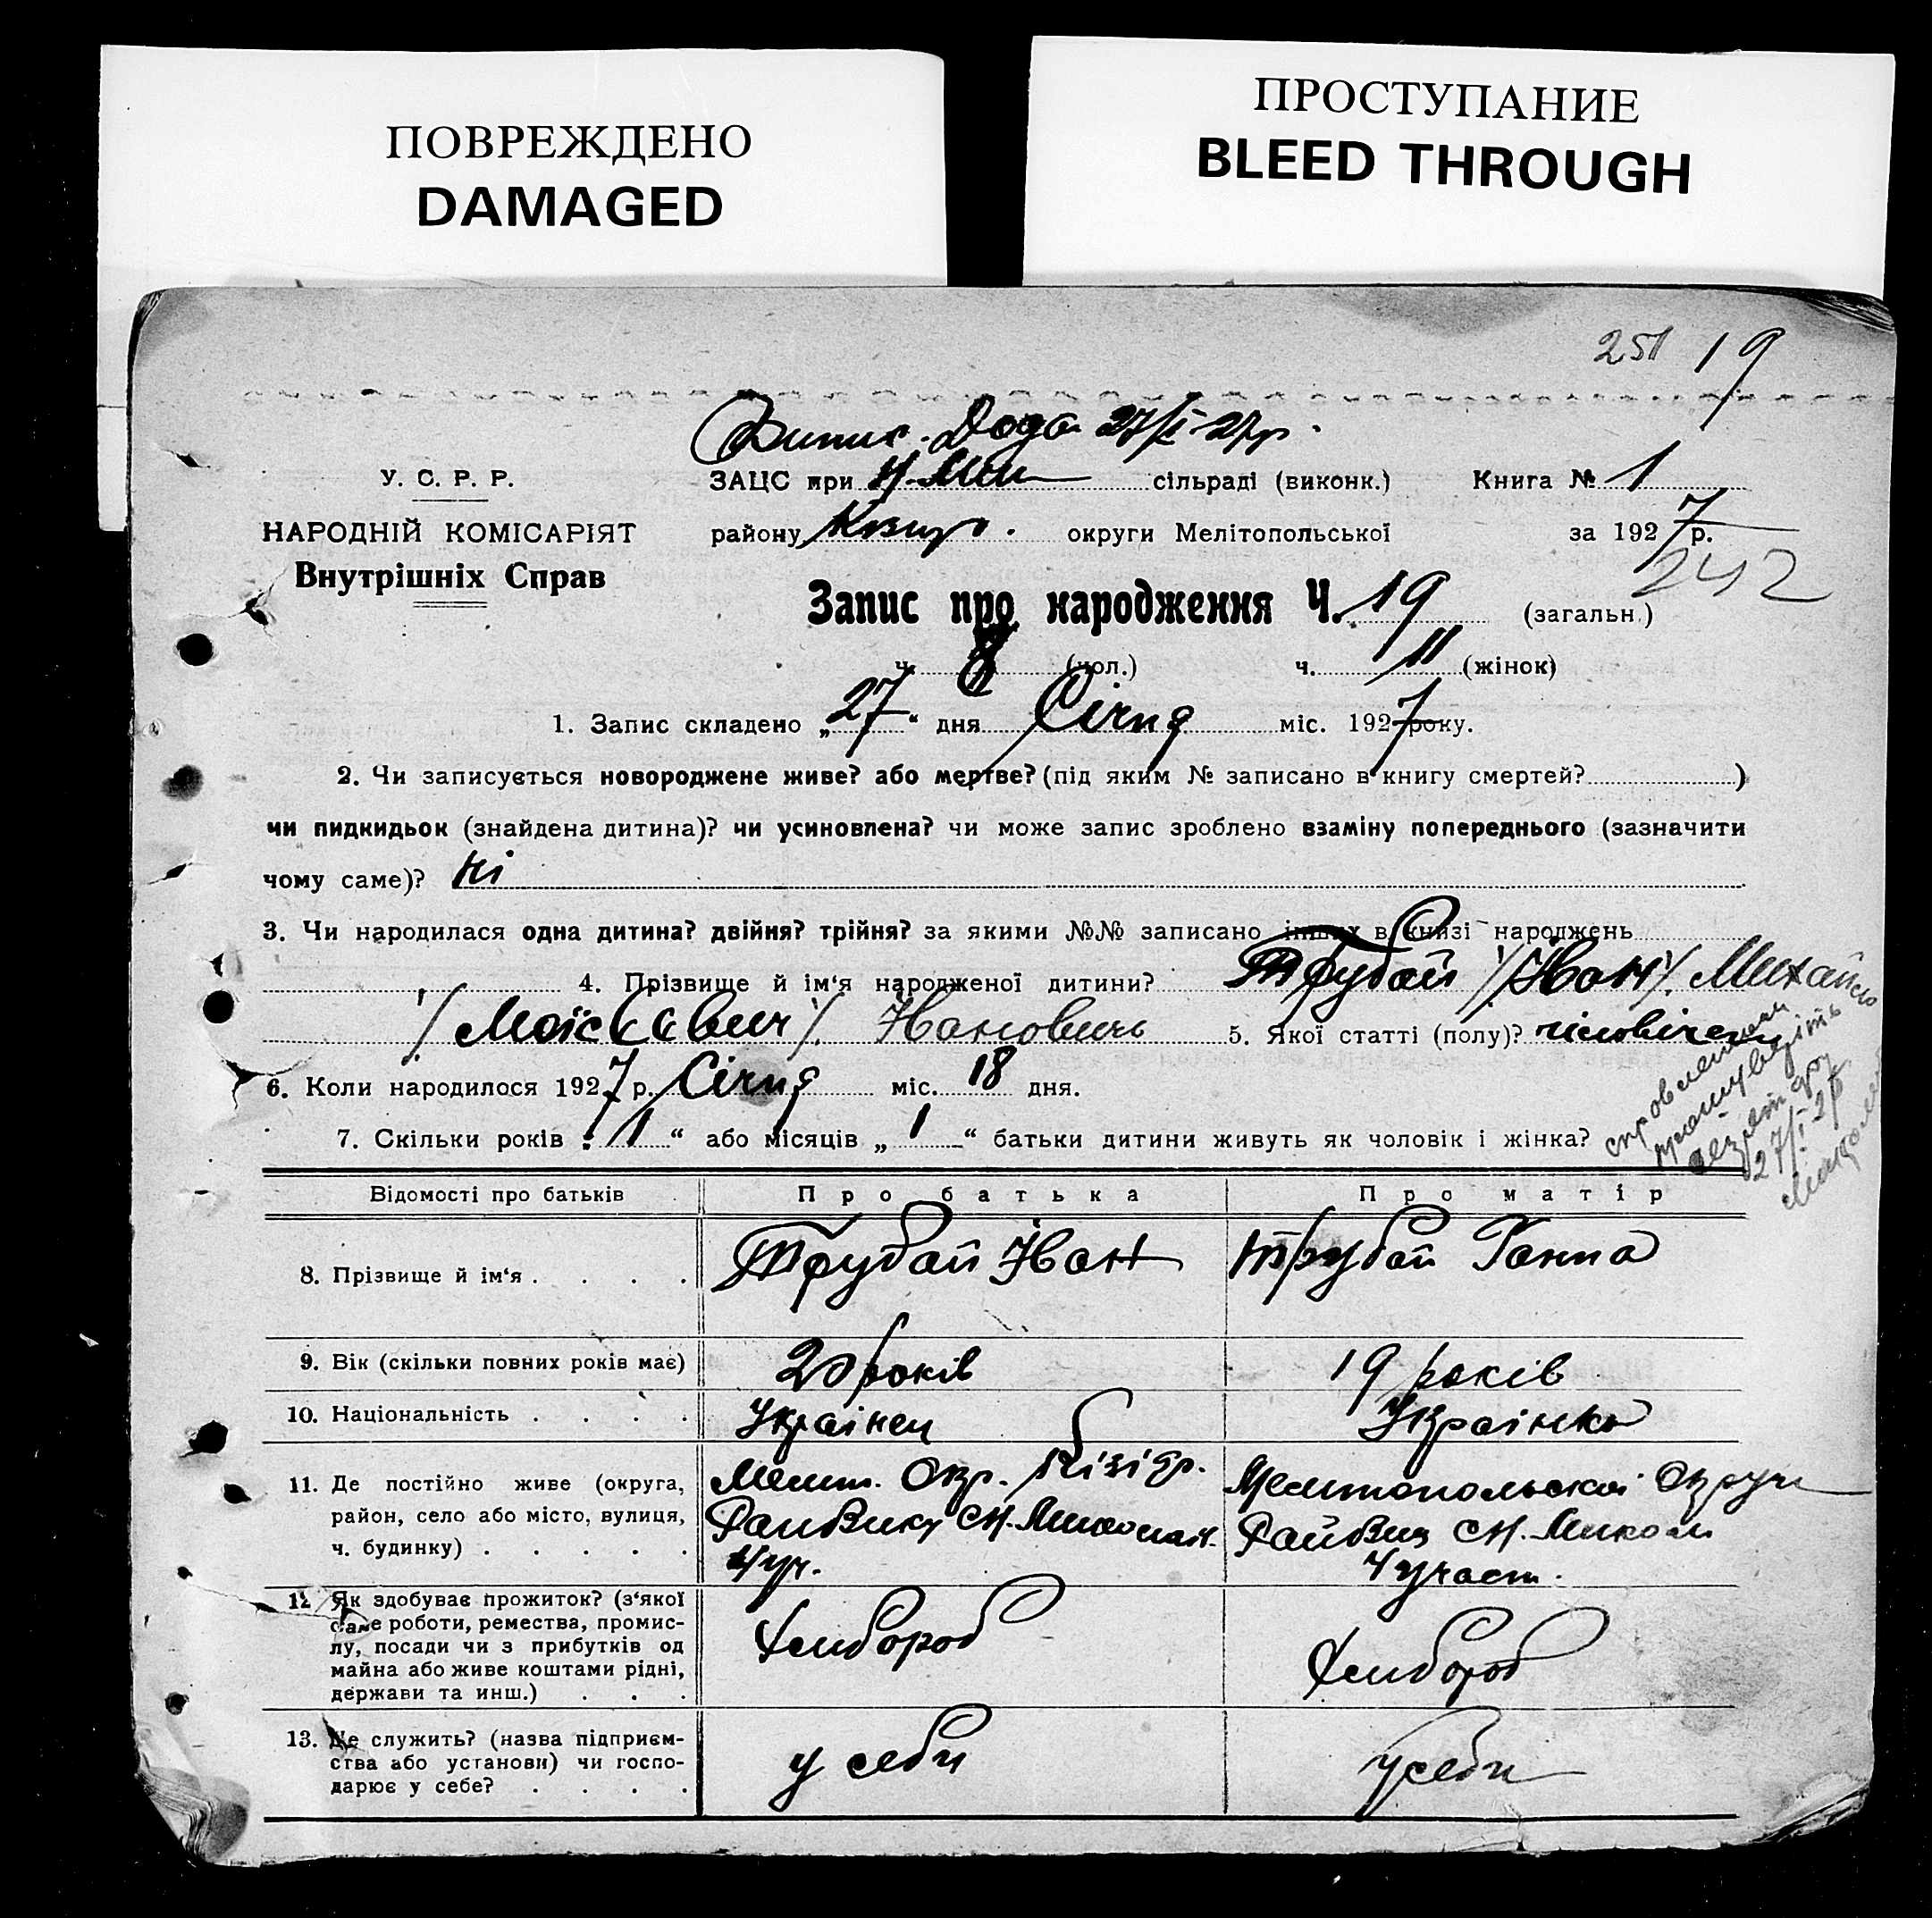 ПОВРЕЖДЕНО
DAMAGED
ПРОСТУПАНИЕ
BLEED THROUGH
251 19
Випис. 27/I-27р.
У. С. Р. Р.
ЗАЦС при сільраді (виконк.) Книга № 1
НАРОДНІЙ КОМІСАРІЯТ
району округи Мелітопольської за 1927 р.
Внутрішніх Справ
242
Запис про народження Ч. 19 (загальн.)
ч. 8 (чол.) ч. 11 (жінок)
1. Запис складено „27“ дня Січня міс. 1927 року.
2. Чи записується новороджене живе? або мертве? (під яким № записано в книгу смертей? )
чи пидкидьок (знайдена дитина)? чи усиновлена? чи може запис зроблено взаміну попереднього (зазначити
чому саме)? ні
3. Чи народилася одна дитина? двійня? трійня? за якими №№ записано інших в книзі народжень
4. Прізвище й ім‘я народженої дитини? Трубай /Иван/ Михайло
/Моїсєєвич/ Иановичь 5. Якої статті (полу)? чіловічеи
6. Коли народилося 1927 р. Січня міс. 18 дня.
7. Скільки років „1“ або місяців „1“ батьки дитини живуть як чоловік і жінка?
27/I-27
Відомості про батьків Про батька Про матір
8. Прізвище й ім‘я . . . . Трубай Іван Трубай Ганна
9. Вік (скільки повних років має) 20 років 19 років
10. Національність . . . . Українец Українка
11. Де постійно живе (округа, район, село або місто, вулиця, ч. будинку) . . . . .
Меліт. Окр. Мелітопольскої Округи
12. Як здобуває прожиток? (з‘якої саме роботи, ремества, промислу, посади чи з прибутків од майна або живе коштами рідні, держави та инш.) . . .
Хлибороб Хлибороб
13. Де служить? (назва підприємства або установи) чи господарює у себе? . . . .
у себи у себи